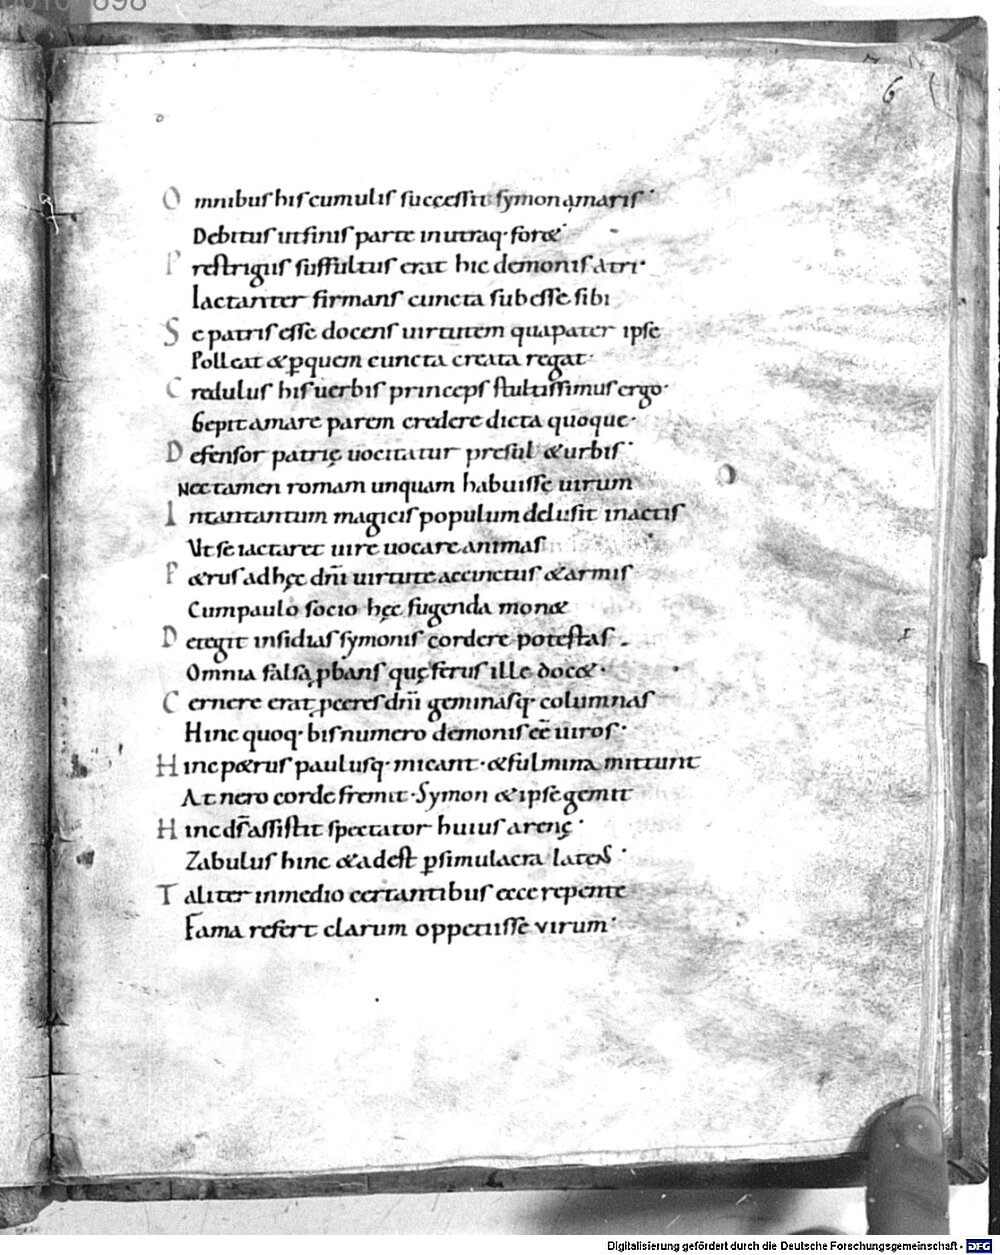 6
Omnibus his cumulis successit symon amaris·
Debitus ut finis parte in utraq· for&·
Prestrigiis suffultus erat hic demonis atri·
Iactanter firmans cuncta subesse sibi
Se patris esse docens uirtutem qua pater ipse
Polleat & ꝑ quem cuncta creata regat·
Credulus his uerbis princeps stultissimus ergo·
Cepit amare parem credere dicta quoque·
Defensor patrię uocitatur presul & urbis·
Nec tamen romam unquam habuisse uirum
In tantantum magicis populum delusit in actis
Ut se iactaret uire uocare animas
P&rus ad hęc dn̄i uirtute accinctus & armis
Cum paulo socio hęc fugenda mon&
Detegit insidias symonis corde re potestas.
Omnia falsa pbans quę ferus ille doc&·
Cernere erat pceres dn̄i geminasq· columnas
Hinc quoq· bis numero demonis eē uiros·
Hinc p&rus paulusq· micant· & fulmina mittunt
At nero corde fremit· Symon & ipse gemit
Hinc ds̄ assistit spectator huius arenę·
Zabulus hinc & adest ꝑ simulacra latens·
Taliter in medio certantibus ecce repente
Fama refert clarum oppetiisse virum·
Digitalisierung gefördert durch die Deutsche Forschungsgemeinschaft - DFG